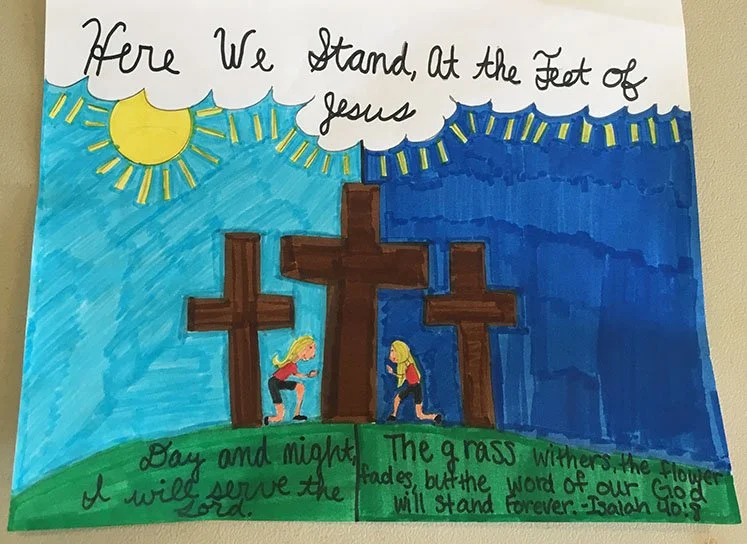 Here We Stand, At the Feet of
Jesus
Day and night,
I will serve the
Lord.
The grass withers, the flower
fades, but the word of our God
will stand forever. -Isaiah 40:8